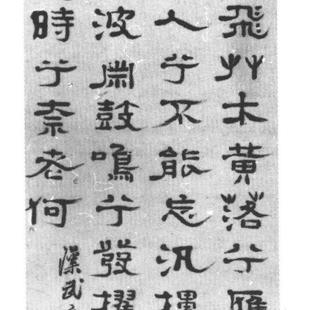 飛艸木黃落兮雁
人兮不能忘汎樓
波簫鼓鳴兮發櫂
時兮奈老何
漢武